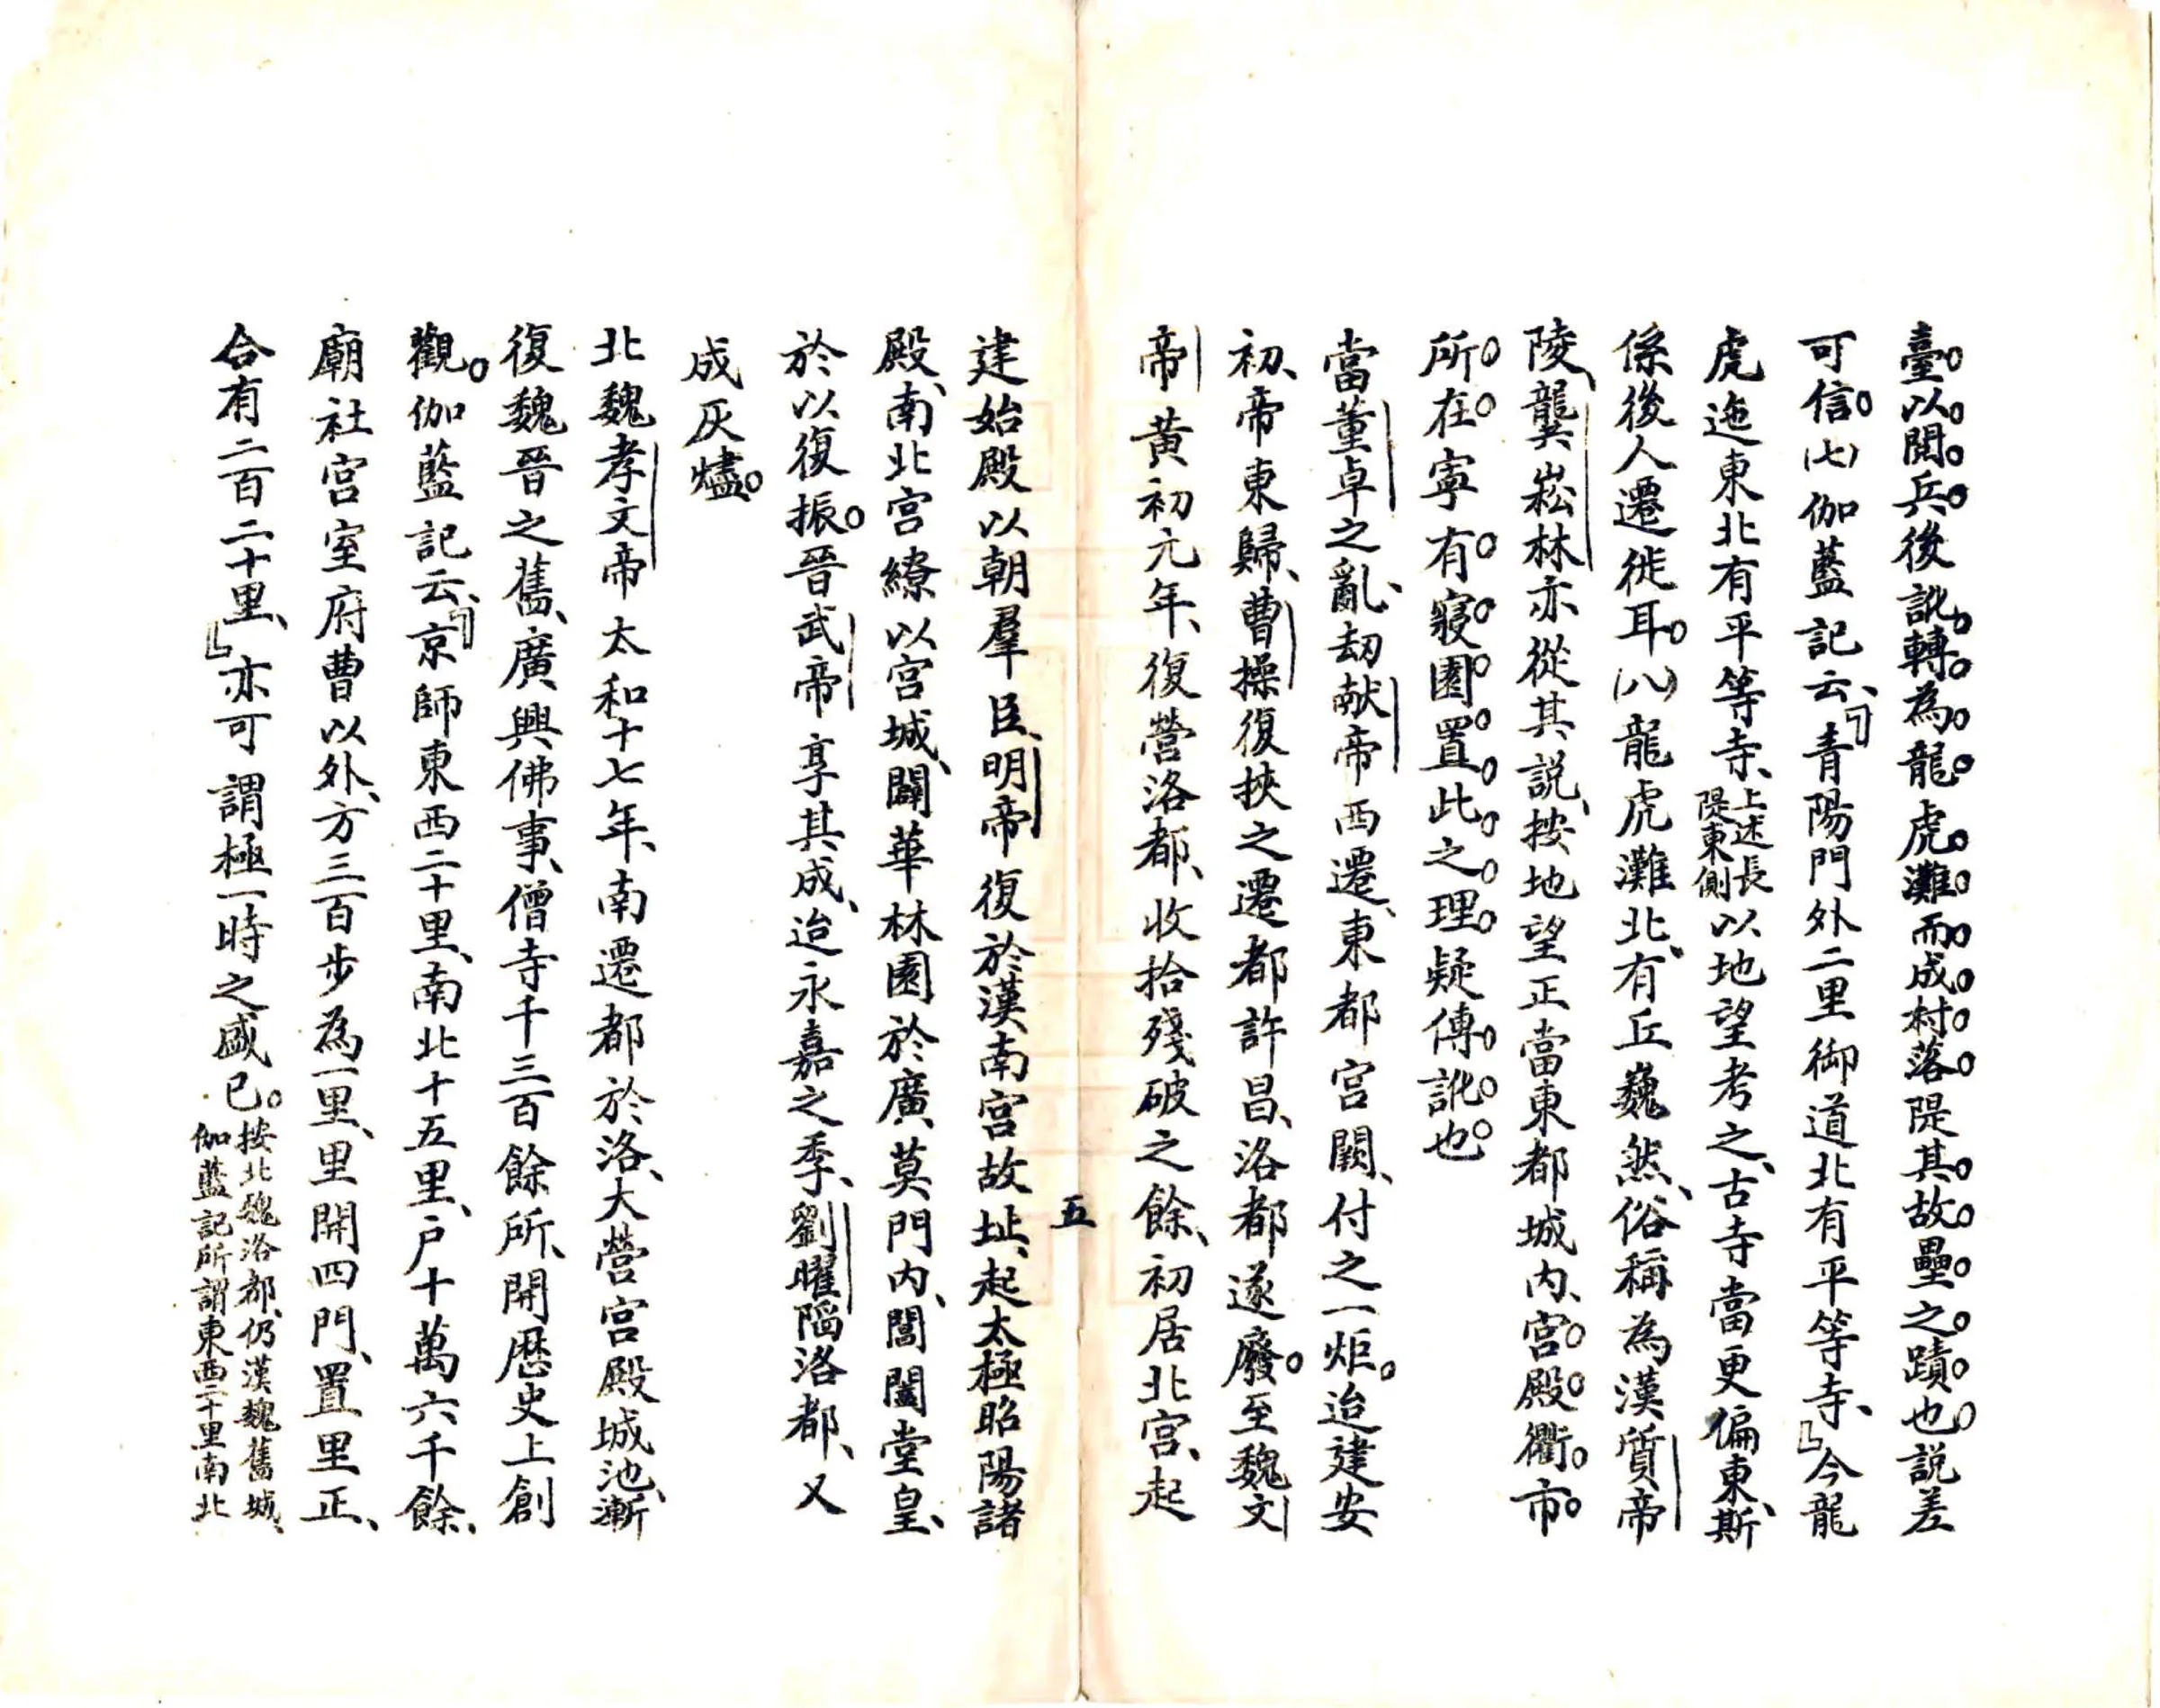 臺以閱兵後訛轉為龍虎灘而成村落隄其故壘之蹟也説差
可信。(七)伽藍記云、「青陽門外二里御道北有平等寺、」今龍
虎迤東北有平等寺、上述長隄東側以地望考之、古寺當更偏東、斯
係後人遷徙耳。(八)龍虎灘北、有丘巍然、俗稱為漢質帝
陵、龔崧林亦從其説、按地望正當東都城内、宮殿衢市
所在寧有寢園置此之理疑傳訛也
當董卓之亂、劫献帝西遷、東都宮闕、付之一炬。迨建安
初、帝東歸、曹操復挾之遷都許昌、洛都遂廢。至魏文
帝黄初元年、復營洛都、收拾殘破之餘、初居北宮、起
五
建始殿以朝羣臣、明帝復於漢南宮故址、起太極昭陽諸
殿、南北宮繚以宮城、闢華林園於廣莫門内、閶闔堂皇、
於以復振。晉武帝享其成、迨永嘉之季、劉曜陷洛都、又
成灰燼。
北魏孝文帝太和十七年、南遷都於洛、大營宮殿城池、漸
復魏晉之舊、廣興佛事、僧寺千三百餘所、開歷史上創
觀。伽藍記云、「京師東西二十里、南北十五里、户十萬六千餘、
廟社宮室府曹以外、方三百步為一里、里開四門、置里正、
合有二百二十里、」亦可謂極一時之盛已。按北魏洛都、仍漢魏舊城、
伽藍記所謂東西二十里南北